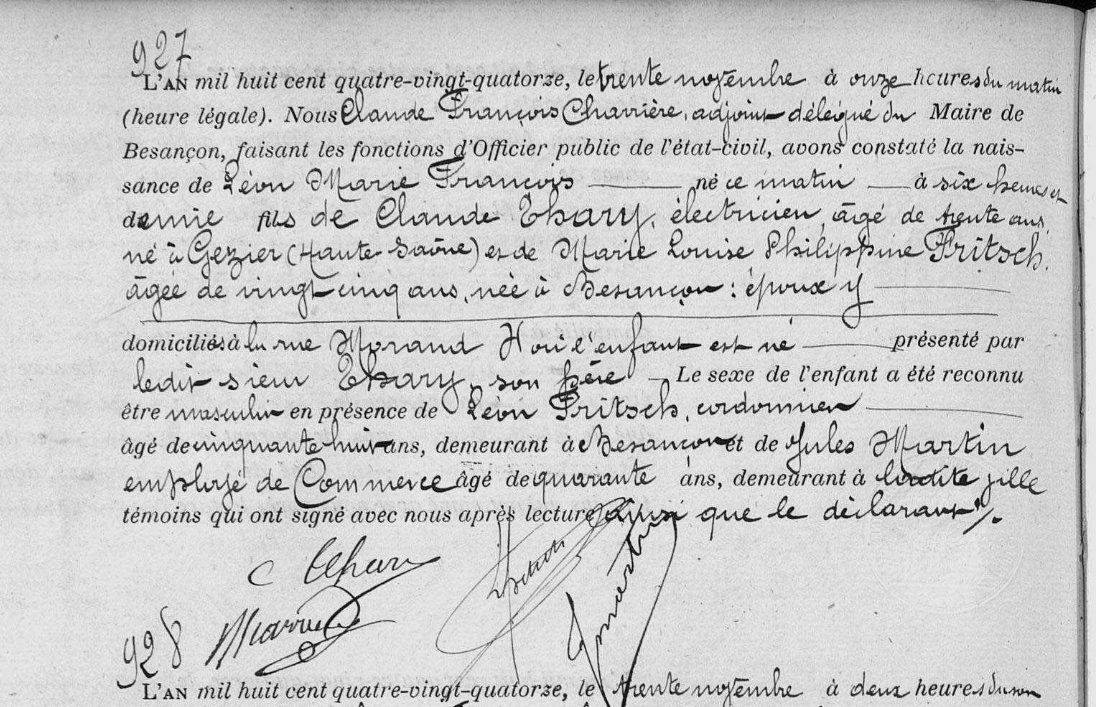 927
L'AN mil huit cent quatre-vingt-quatorze, le trente novembre à onze heures du matin
(heure légale). Nous Claude François Charrière, adjoint délégué du Maire de
Besançon, faisant les fonctions d'Officier public de l'état-civil, avons constaté la nais-
sance de Léon Marie François né ce matin à six heures et
demie fils de Claude Thary, électricien, âgé de trente ans,
né à Gezier (Haute Saône) et de Marie Louise Philippine Fritsch,
âgée de vingt-cinq ans, née à Besançon : époux y
domiciliés à la rue Morand où l'enfant est né présenté par
ledit sieur Thary, son père Le sexe de l'enfant a été reconnu
être masculin en présence de Léon Fritsch, cordonnier
âgé de cinquante huit ans, demeurant à Besançon et de Jules Martin
employé de Commerce âgé de quarante ans, demeurant à ladite ville
témoins qui ont signé avec nous après lecture ainsi que le déclarant ./.
C Thary
Fritsch
J Martin
Charrière
928
L'AN mil huit cent quatre-vingt-quatorze, le trente novembre à deux heures du soir